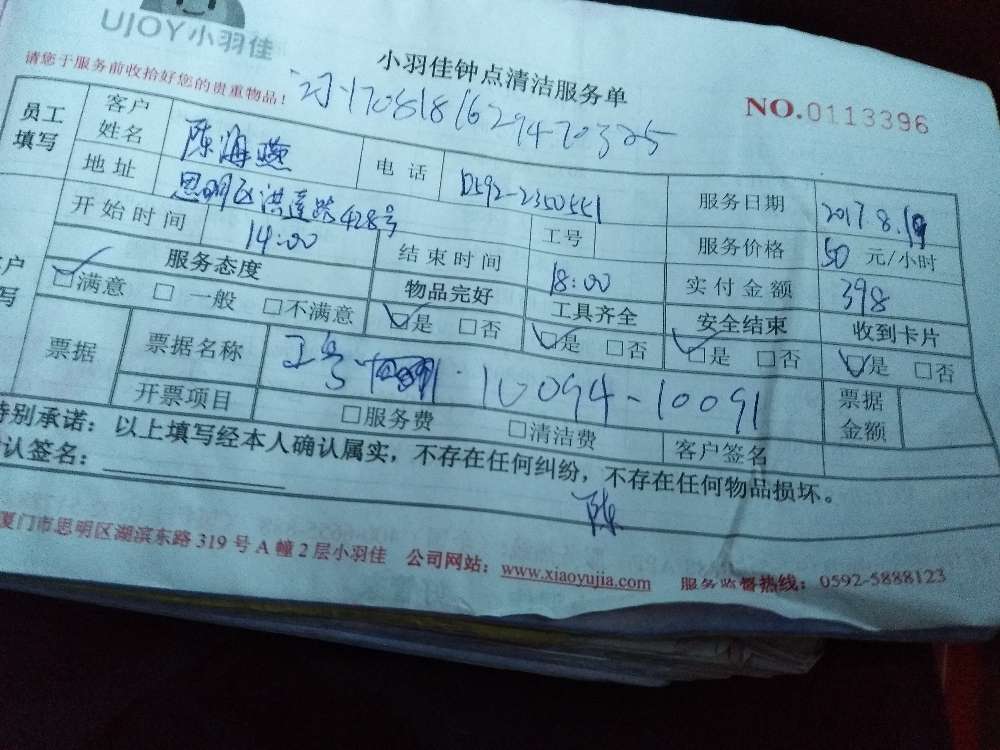 UJOY小羽佳
小羽佳钟点清洁服务单
请您于服务前收拾好您的贵重物品！
1708181629470325
NO.0113396
员工填写
客户姓名 陈海燕 电话 0592-2350551 服务日期 2017.8.19
地址 思明区洪莲路428号 工号 服务价格 50 元/小时
开始时间 14:00 结束时间 18:00 实付金额 398
服务态度 物品完好 工具齐全 安全结束 收到卡片
□满意 □一般 □不满意 □是 □否 □是 □否 □是 □否 □是 □否
票据 票据名称 工号 10094-10091 票据金额
开票项目 □服务费 □清洁费 客户签名
特别承诺：以上填写经本人确认属实，不存在任何纠纷，不存在任何物品损坏。
认签名：
陈
厦门市思明区湖滨东路319号A幢2层小羽佳 公司网站：www.xiaoyujia.com 服务监督热线：0592-5888123